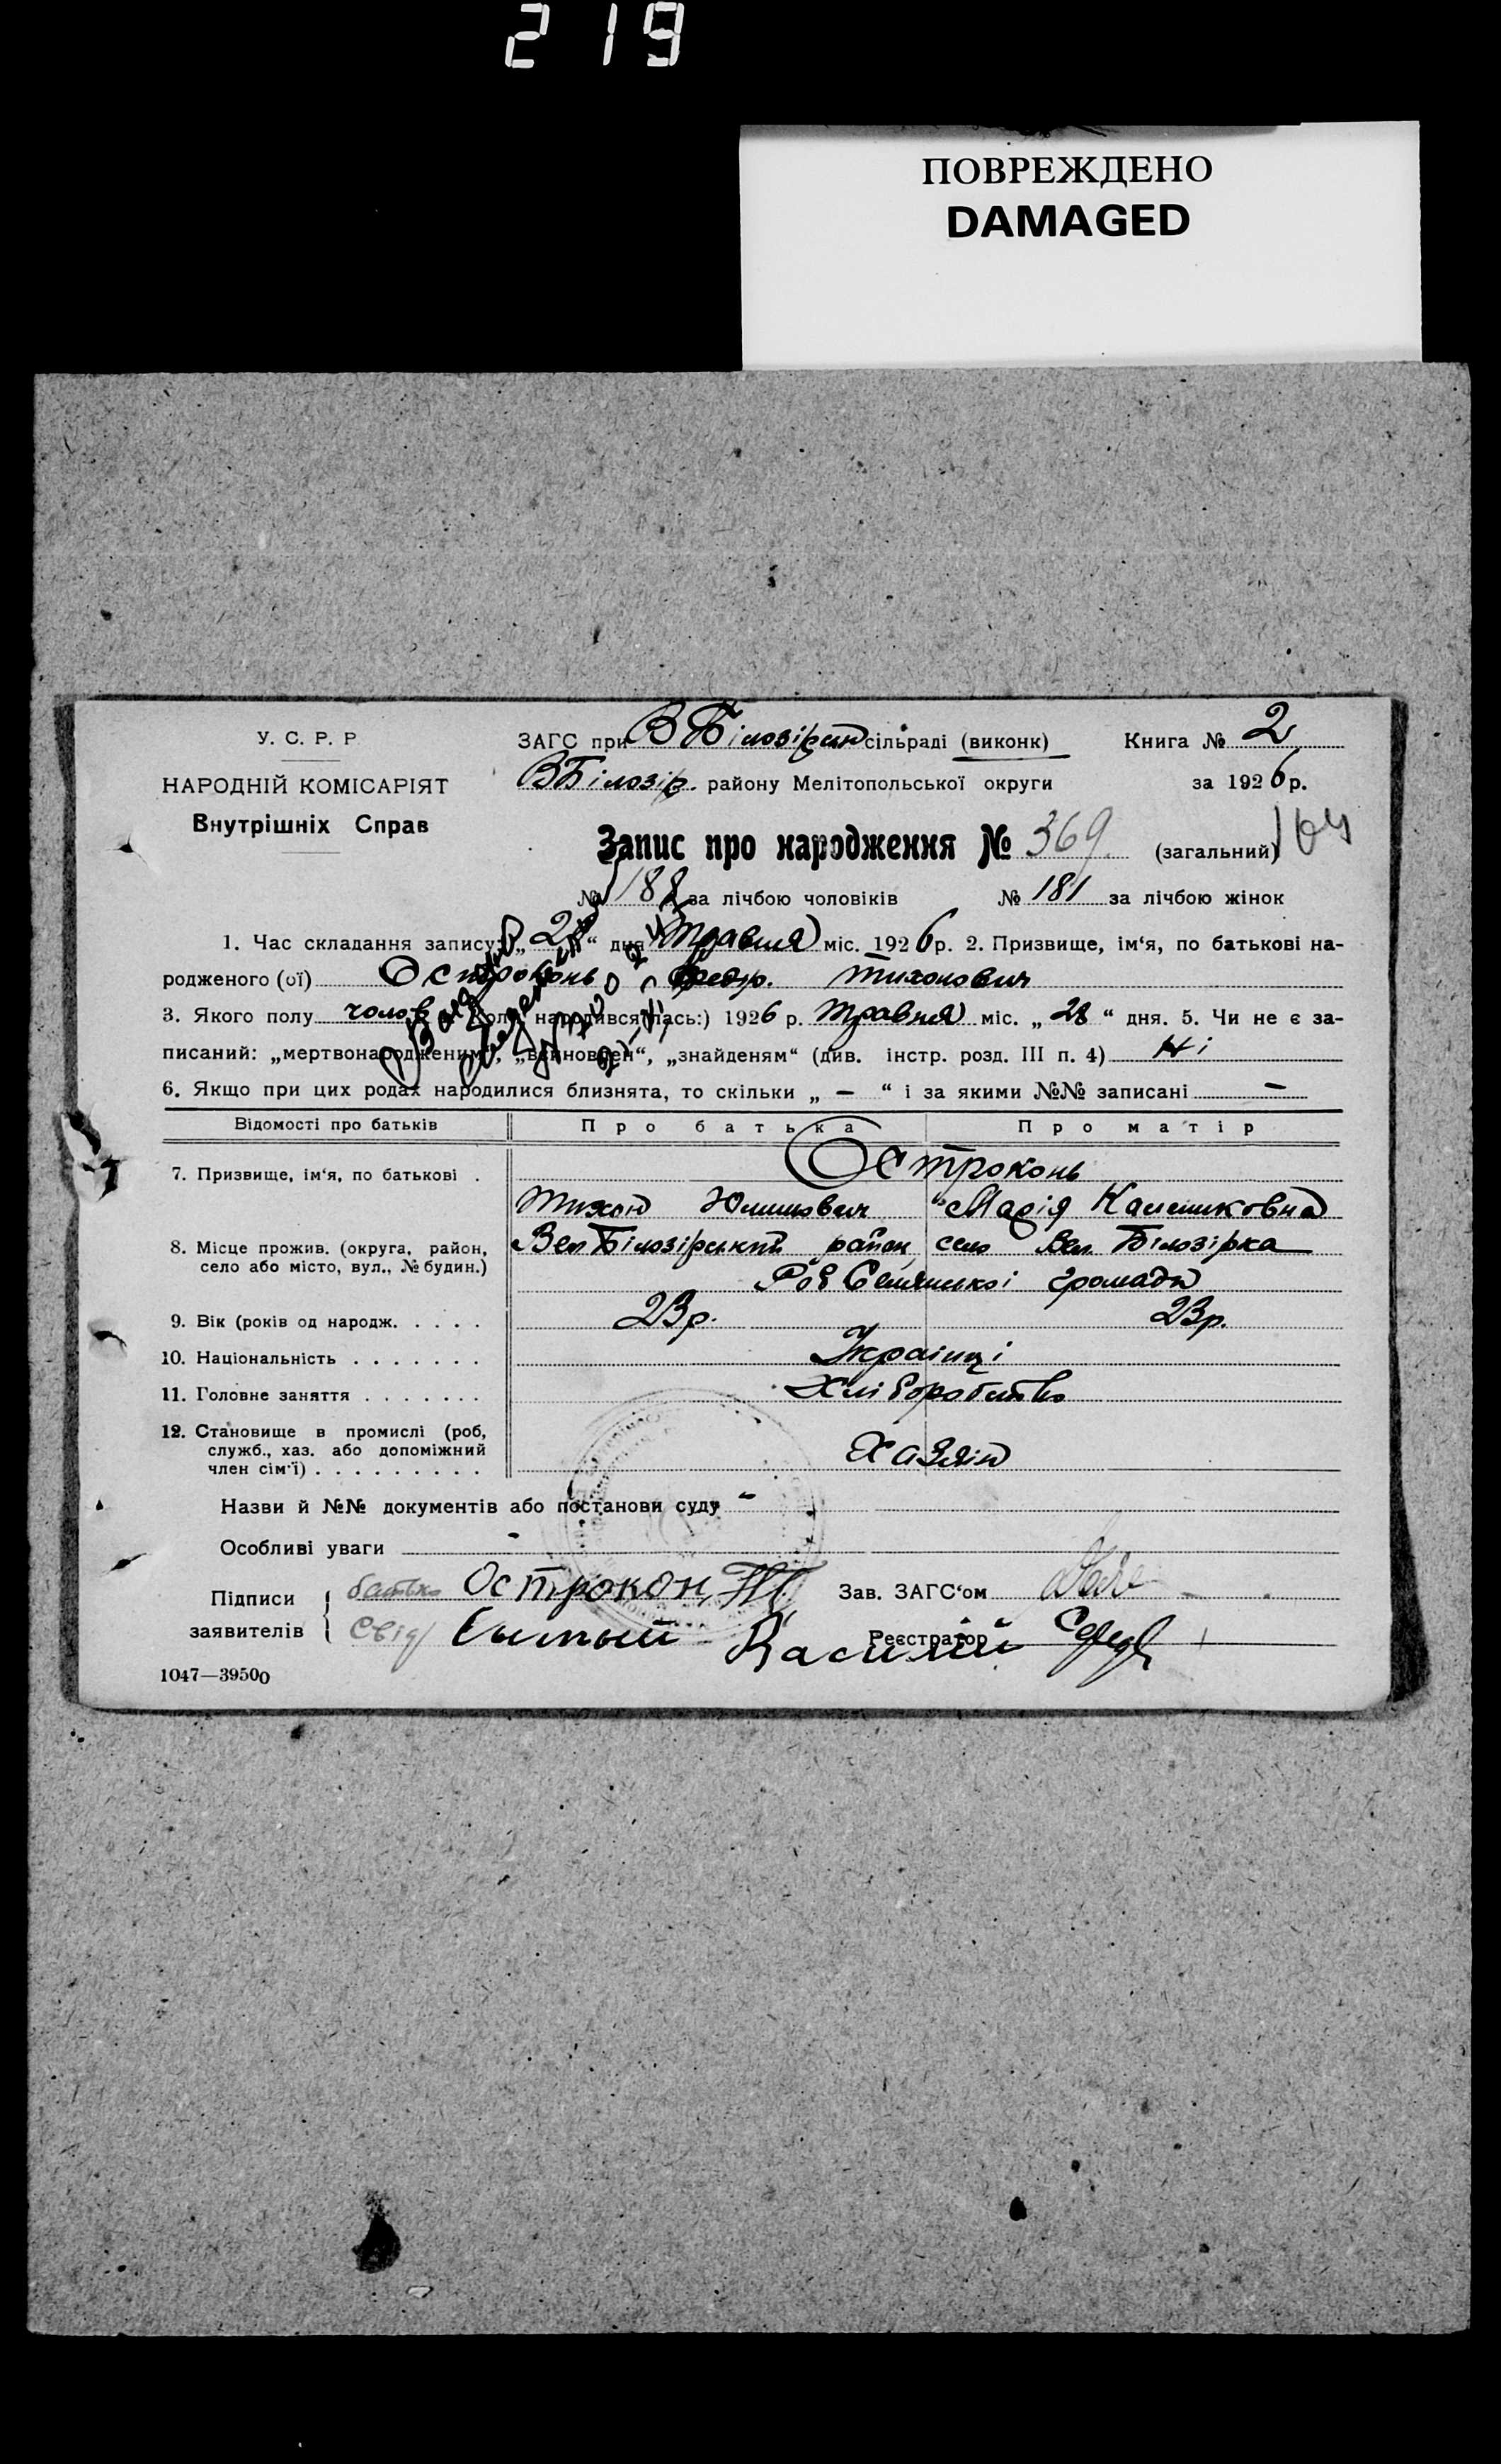 219
ПОВРЕЖДЕНО
DAMAGED
У. С. Р. Р
НАРОДНІЙ КОМІСАРІЯТ
Внутрішніх Справ
ЗАГС при В Білозірсн сільраді (виконк)
ВБілозір. району Мелітопольської округи
Книга № 2
за 1926 р.
Запис про народження № 369 (загальний)
№ 188 за лічбою чоловіків № 181 за лічбою жінок
1. Час складання запису: „ 2 “ дня Травня міс. 1926 р. 2. Призвище, ім‘я, по батькові на-
родженого (ої) Остроконь Федір. Тихонович
3. Якого полу чолов 4. Коли народився (лась:) 1926 р. Травня міс. „ 28 “ дня. 5. Чи не є за-
писаний: „мертвонародженим“, „всиновлен“, „знайденям“ (див. інстр. розд. III п. 4) Ні
6. Якщо при цих родах народилися близнята, то скільки „ — “ і за якими №№ записані —
Відомості про батьків Про батька Про матір
7. Призвище, ім‘я, по батькові . Остроконь
Тихон Марія
8. Місце прожив. (округа, район, село або місто, вул., № будин.) Вел Білозірський район село Вел. Білозірка
громади
9. Вік (років од народж. . . . . 23 р. 23 р.
10. Національність . . . . . . . Українці
11. Головне заняття . . . . . . . Хліборобство
12. Становище в промислі (роб,
служб., хаз. або допоміжний
член сім‘ї) . . . . . . . . . Хазяїн
Назви й №№ документів або постанови суду -
Особливі уваги -
Підписи батько Острокон, Зав. ЗАГС‘ом
заявителів свід Василій Реєстратор
1047—39500